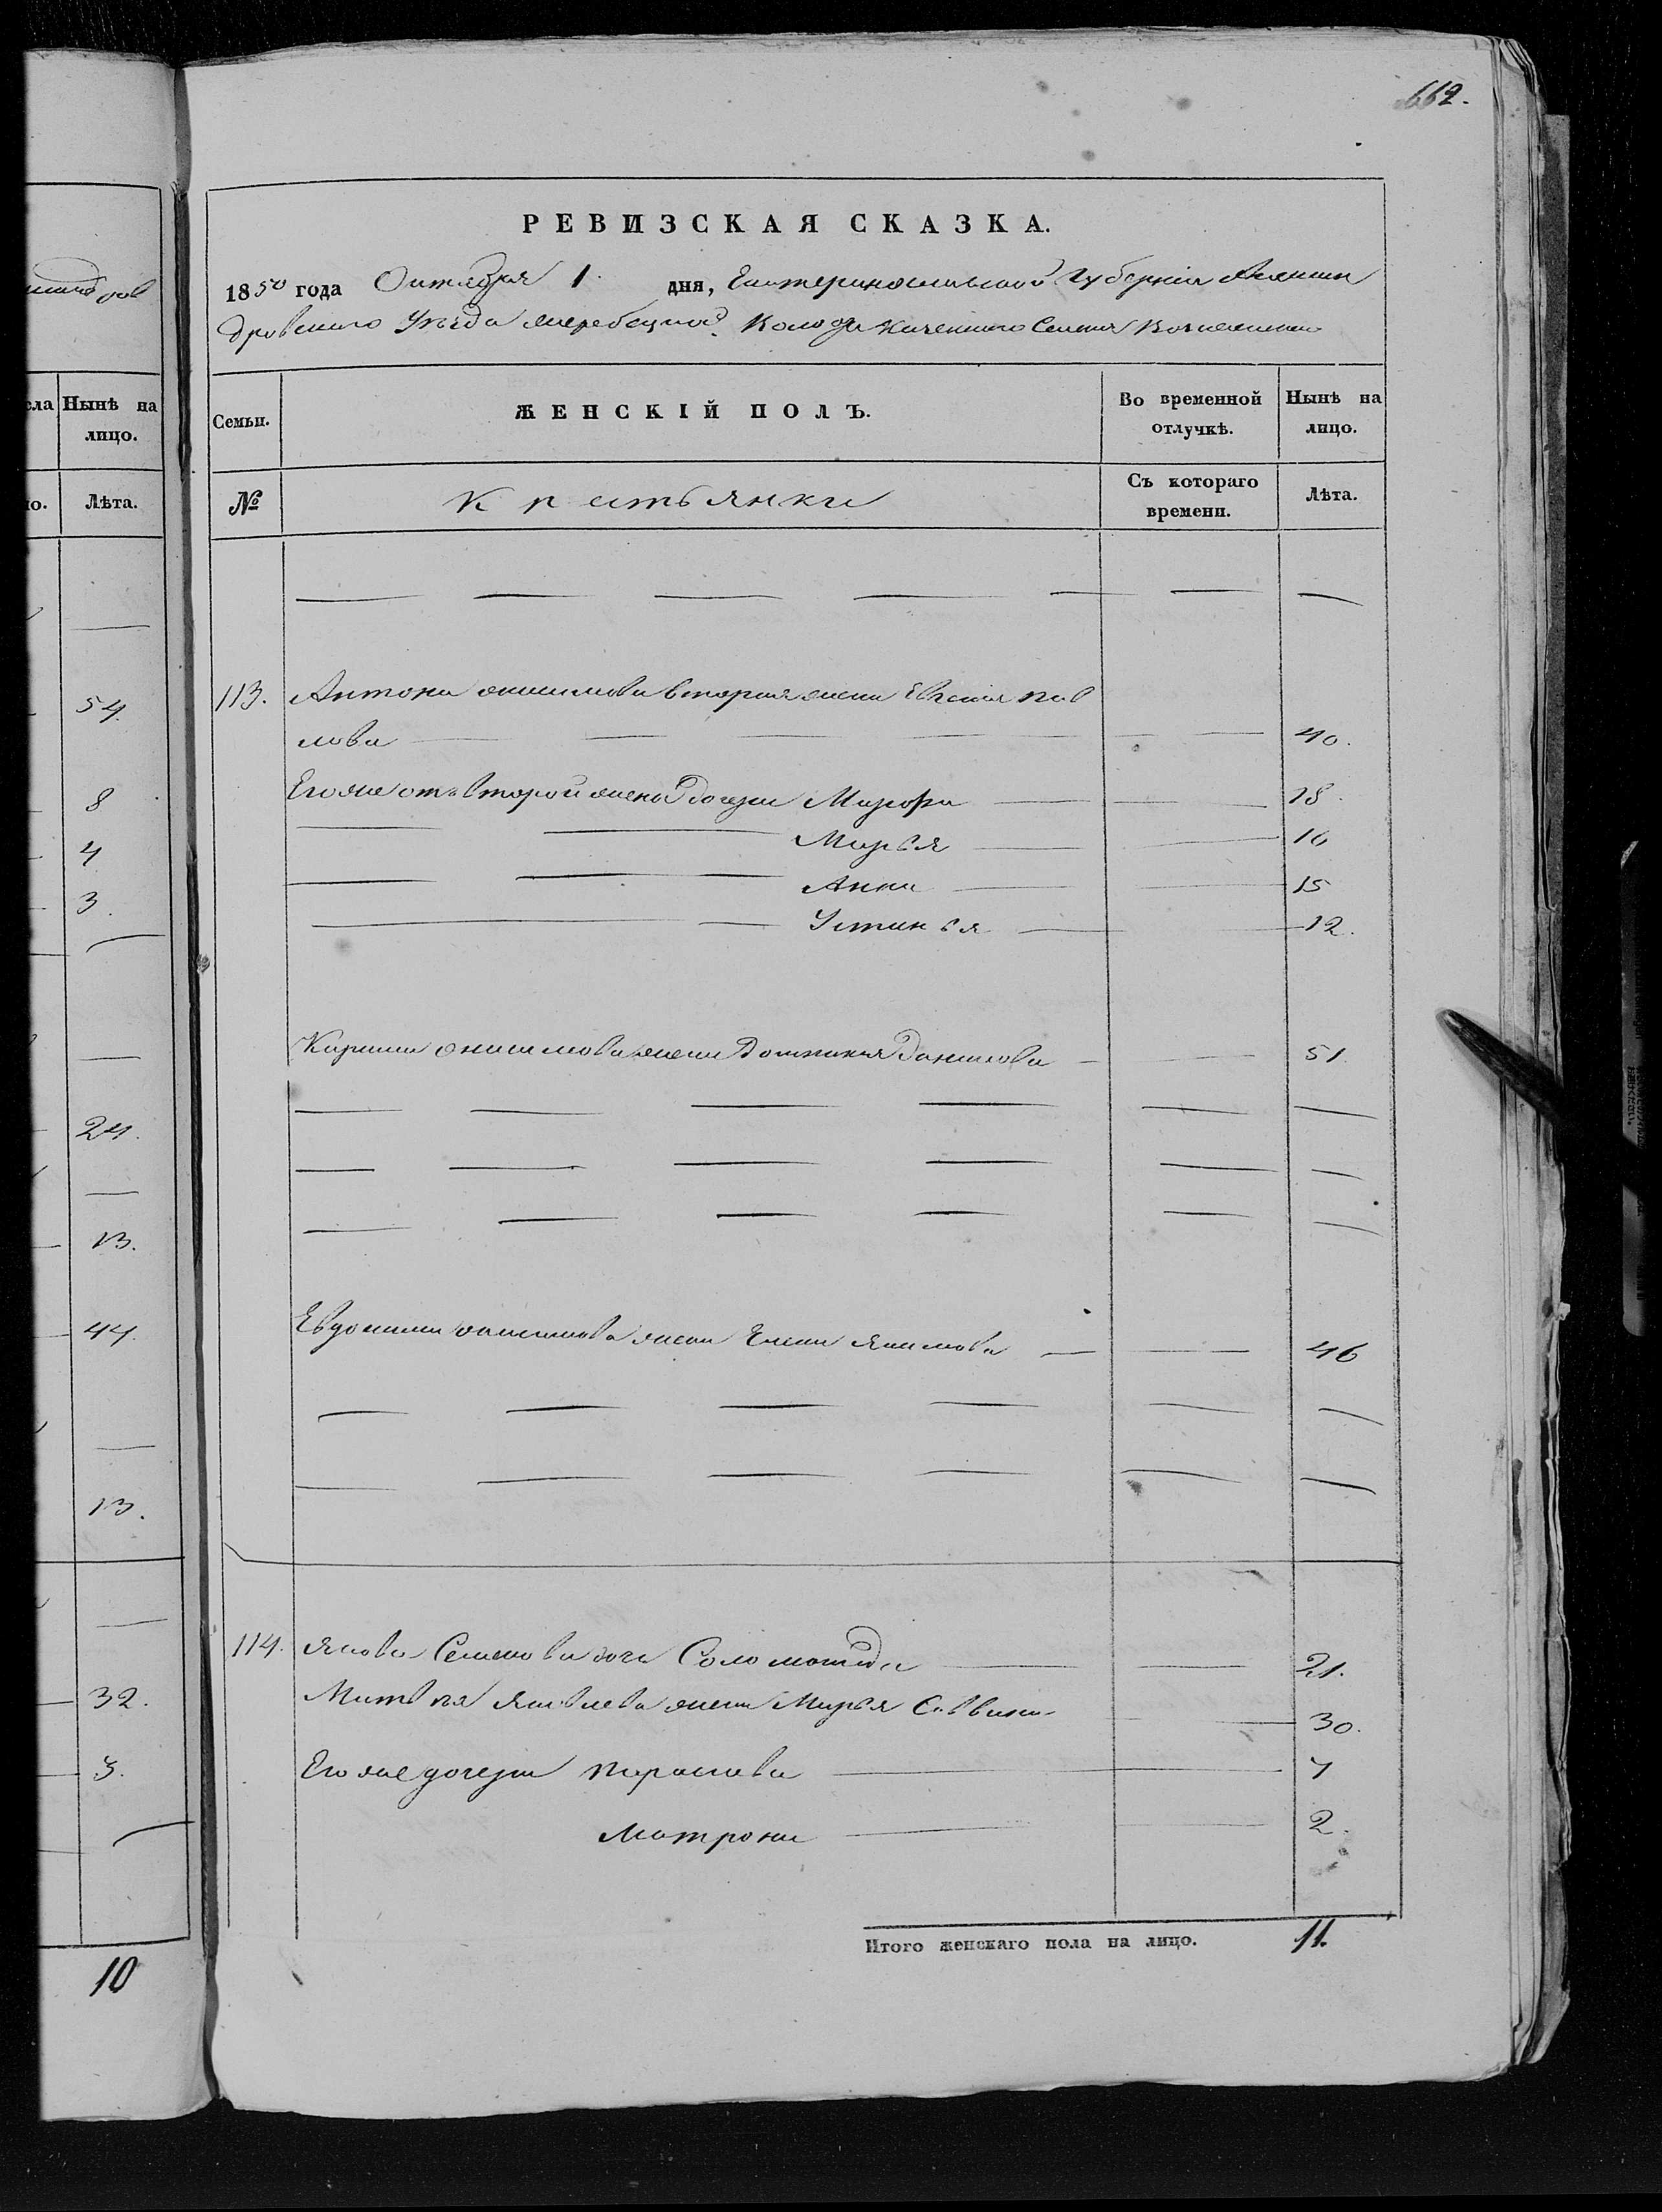 662.
РЕВИЗСКАЯ СКАЗКА.
1850 года Октября 1. дня, Екатеринославской Губерніи Алексан
дровского Уѣзда Жеребецкой Волости казенного Селенія
сла Нынѣ на лицо.
Семьи. ЖЕНСКІЙ ПОЛЪ. Во временной отлучкѣ. Нынѣ на лицо.
ло. Лѣта.
№ Крестьянки Съ котораго времени. Лѣта.
113. Антона Онисимова вторая жена Евгенія Пав
лова 40.
Его же отъ второй жены дочери Мавра 18.
Марья 16
Анна 15
Устинья 12.
Карпа Онисимова жена Домникия Данилова 51.
Евдокима Онисимова жена Елена Якимова 46
114. Якова Семенова дочь Соломонида 21.
Матвѣя Яковлева жена Марья Саввина 30.
Его же дочери Парасковья 7
Матрона 2.
Итого женскаго пола на лицо. 11.
54.
8
4
3.
24.
13.
44.
13.
32.
3.
10